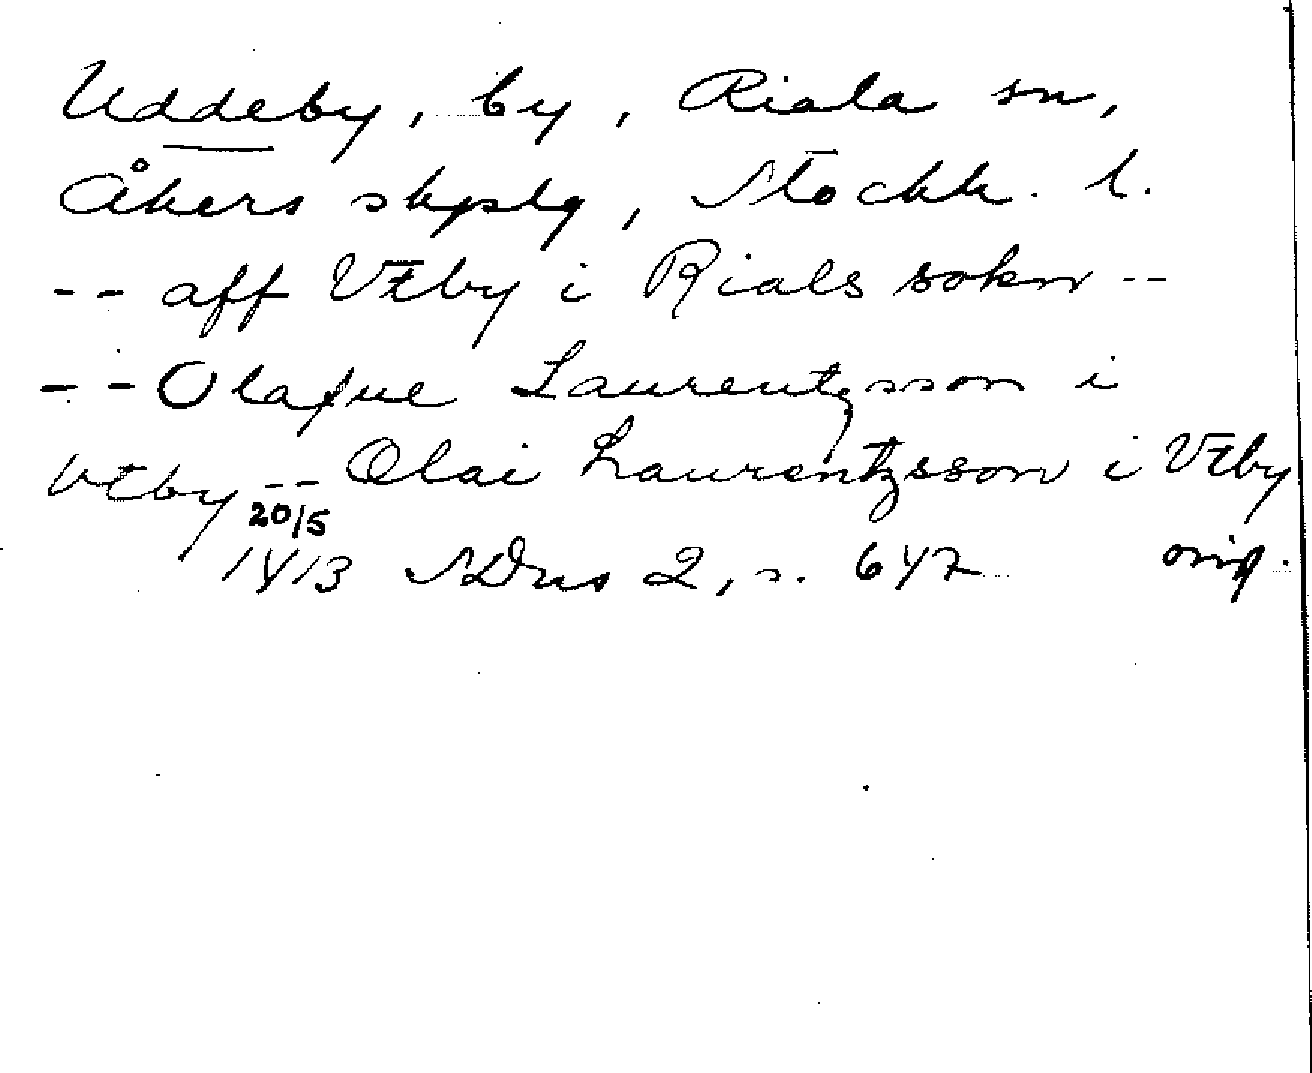 Uddeby, by, Riala sn,
Åkers skpslg, Stockh. l.
-- aff Vtby i Rials sokn --
-- Olafue Laurentzsson i
Vtby -- Olai Laurentzsson i Vtby
20/5
1413 SDns 2, s. 647 orig.